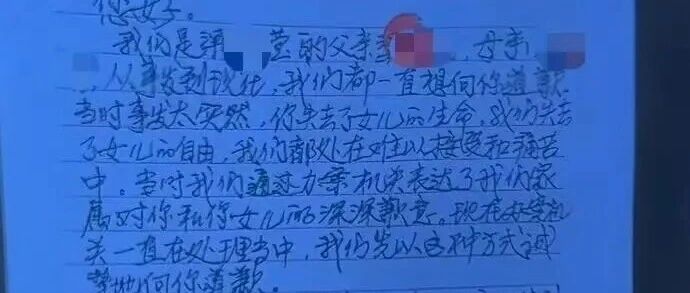 您好。
我们是梁 莹的父亲梁 ，母亲
从事发到现在，我们都一直想向你道歉
当时事发太突然，你失去了女儿的生命，我们失去
了女儿的自由，我们都处在难以接受和痛苦
中。当时我们通过办案机关表达了我们家
属对你和你女儿的深深歉意。现在办案机
关一直在处理当中，我们先以这种方式诚
挚地向你道歉。